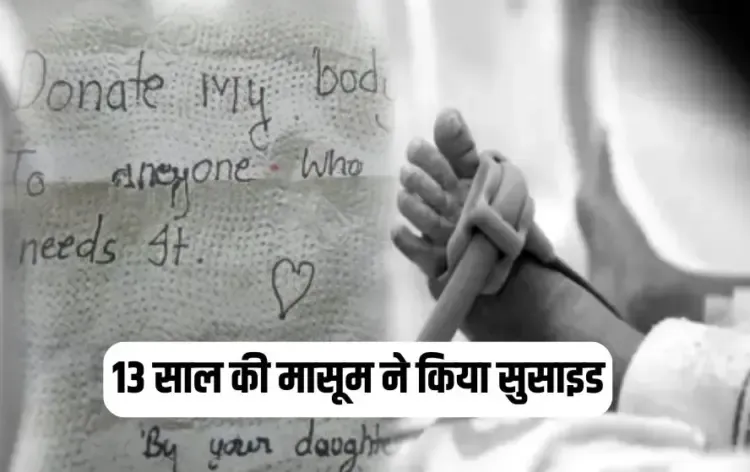 Donate My body
To aneyone who
needs It.
13 साल की मासूम ने किया सुसाइड
By your daughte